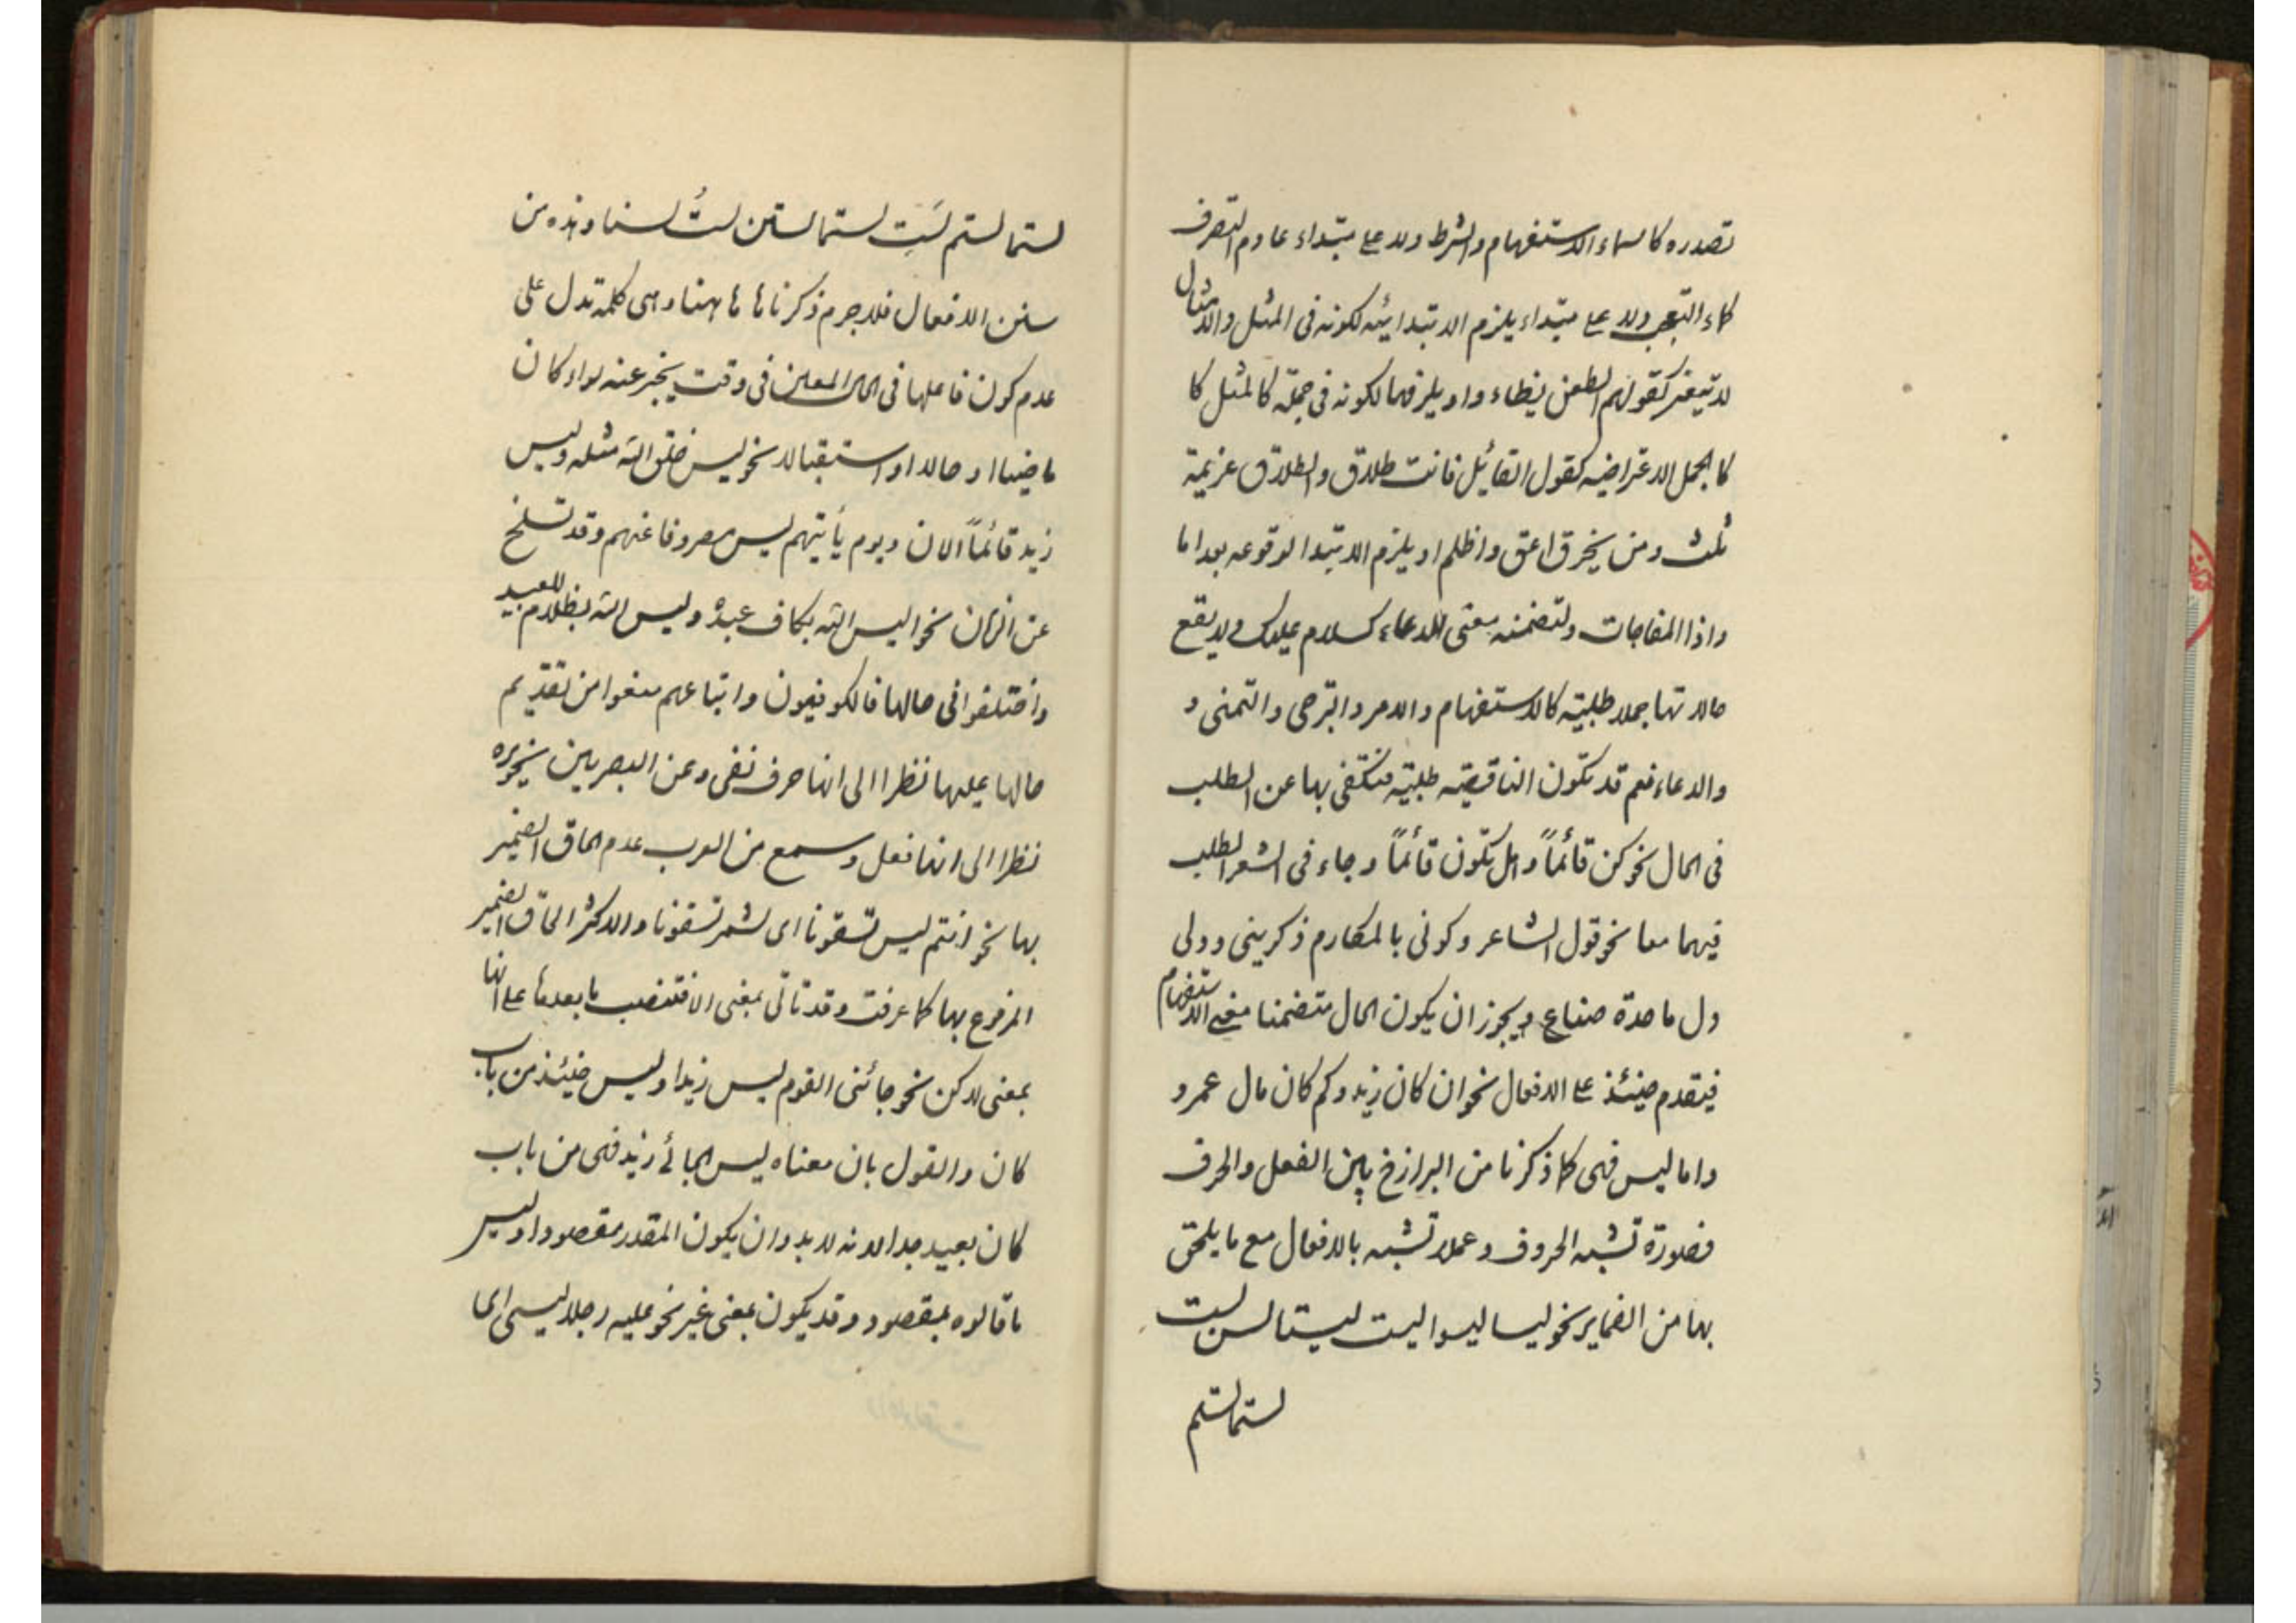 تصدره كاسماء الاستفهام والشرط ولا على مبتداء عادم التصرف
كماء التعجب ولا على مبتداء يلزم الابتدائيه لكونه في المثل والامثال
لا تتغير كقولهم الطعن يظاء واو يلزمها لكونه في جملة كالمثل كا
كالجمل الاعتراضيه كقول القائل فانت طلاق والطلاق عزيمة
ثلث ومن يخرق اعق واظلم او يلزم الابتدا لوقوعه بعد اما
واذا المفاجات ولتضمنه معنى الدعاء كسلام عليك ولا يقع
حالاتها جملا طلبيته كالاستفهام والامر والترجى والتمنى و
والدعاء نعم قد تكون الناقصة طلبيّة فتكتفى بها عن الطلب
فى الحال نحو كن قائماً وهل تكون قائماً وجاء فى الشعر الطلب
فيهما معا نحو قول الشاعر وكونى بالمكارم ذكرينى وولى
ول ماجدة صناع ويجوز ان يكون الحال متضمنا معنى الاستفهام
فيتقدم حينئذ على الافعال نحو ان كان زيد وكم كان مال عمرو
واما ليس فهى كما ذكرنا من البرازخ بين الفعل والحرف
فصورة تشبه الحروف وعملا تشبه بالافعال مع ما يلحق
بها من الضماير نحو ليسا ليسوا ليست ليستا لسن لست
لستما لستم
لستما لستم لستِ لستما لستن لستُ لسنا وهذه من
سنن الافعال فلا جرم ذكرناها هاهنا وهى كلمة تدل على
عدم كون فاعلها فى الحال المعلن فى وقت يخبر عنه سواء كان
ماضيا او حالا او استقبالا نحو ليس خلق الله مثله وليس
زيد قائماً الان ويوم يأتيهم ليس مصروفا عنهم وقد تسلخ
عن الزمان نحو اليس الله بكاف عبده وليس الله بظلام للعبيد
واختلفوا فى حالها فالكوفيون واتباعهم منعوا من تقديم
حالها عليها نظرا الى انها حرف نفى وعن البصريين تجويزه
نظرا الى انها فعل وسمع من العرب عدم الحاق الضمير
بها نحو انتم ليس تسقونا اى لستم تسقونا والاكثر الحاق الضمير
المرفوع بها كما عرفت وقد تاتى بمعنى الا فتنصب ما بعدها على انها
بمعنى لاكن نحو جائنى القوم ليس زيدا وليس حينئذ من باب
كان والقول بان معناه ليس الجائى زيد فهى من باب
كان بعيد جدا لانه لا بد وان يكون المقدر مقصودا وليس
ما قالوه بمقصود وقد يكون بمعنى غير نحو عليه رجلا ليسى اى